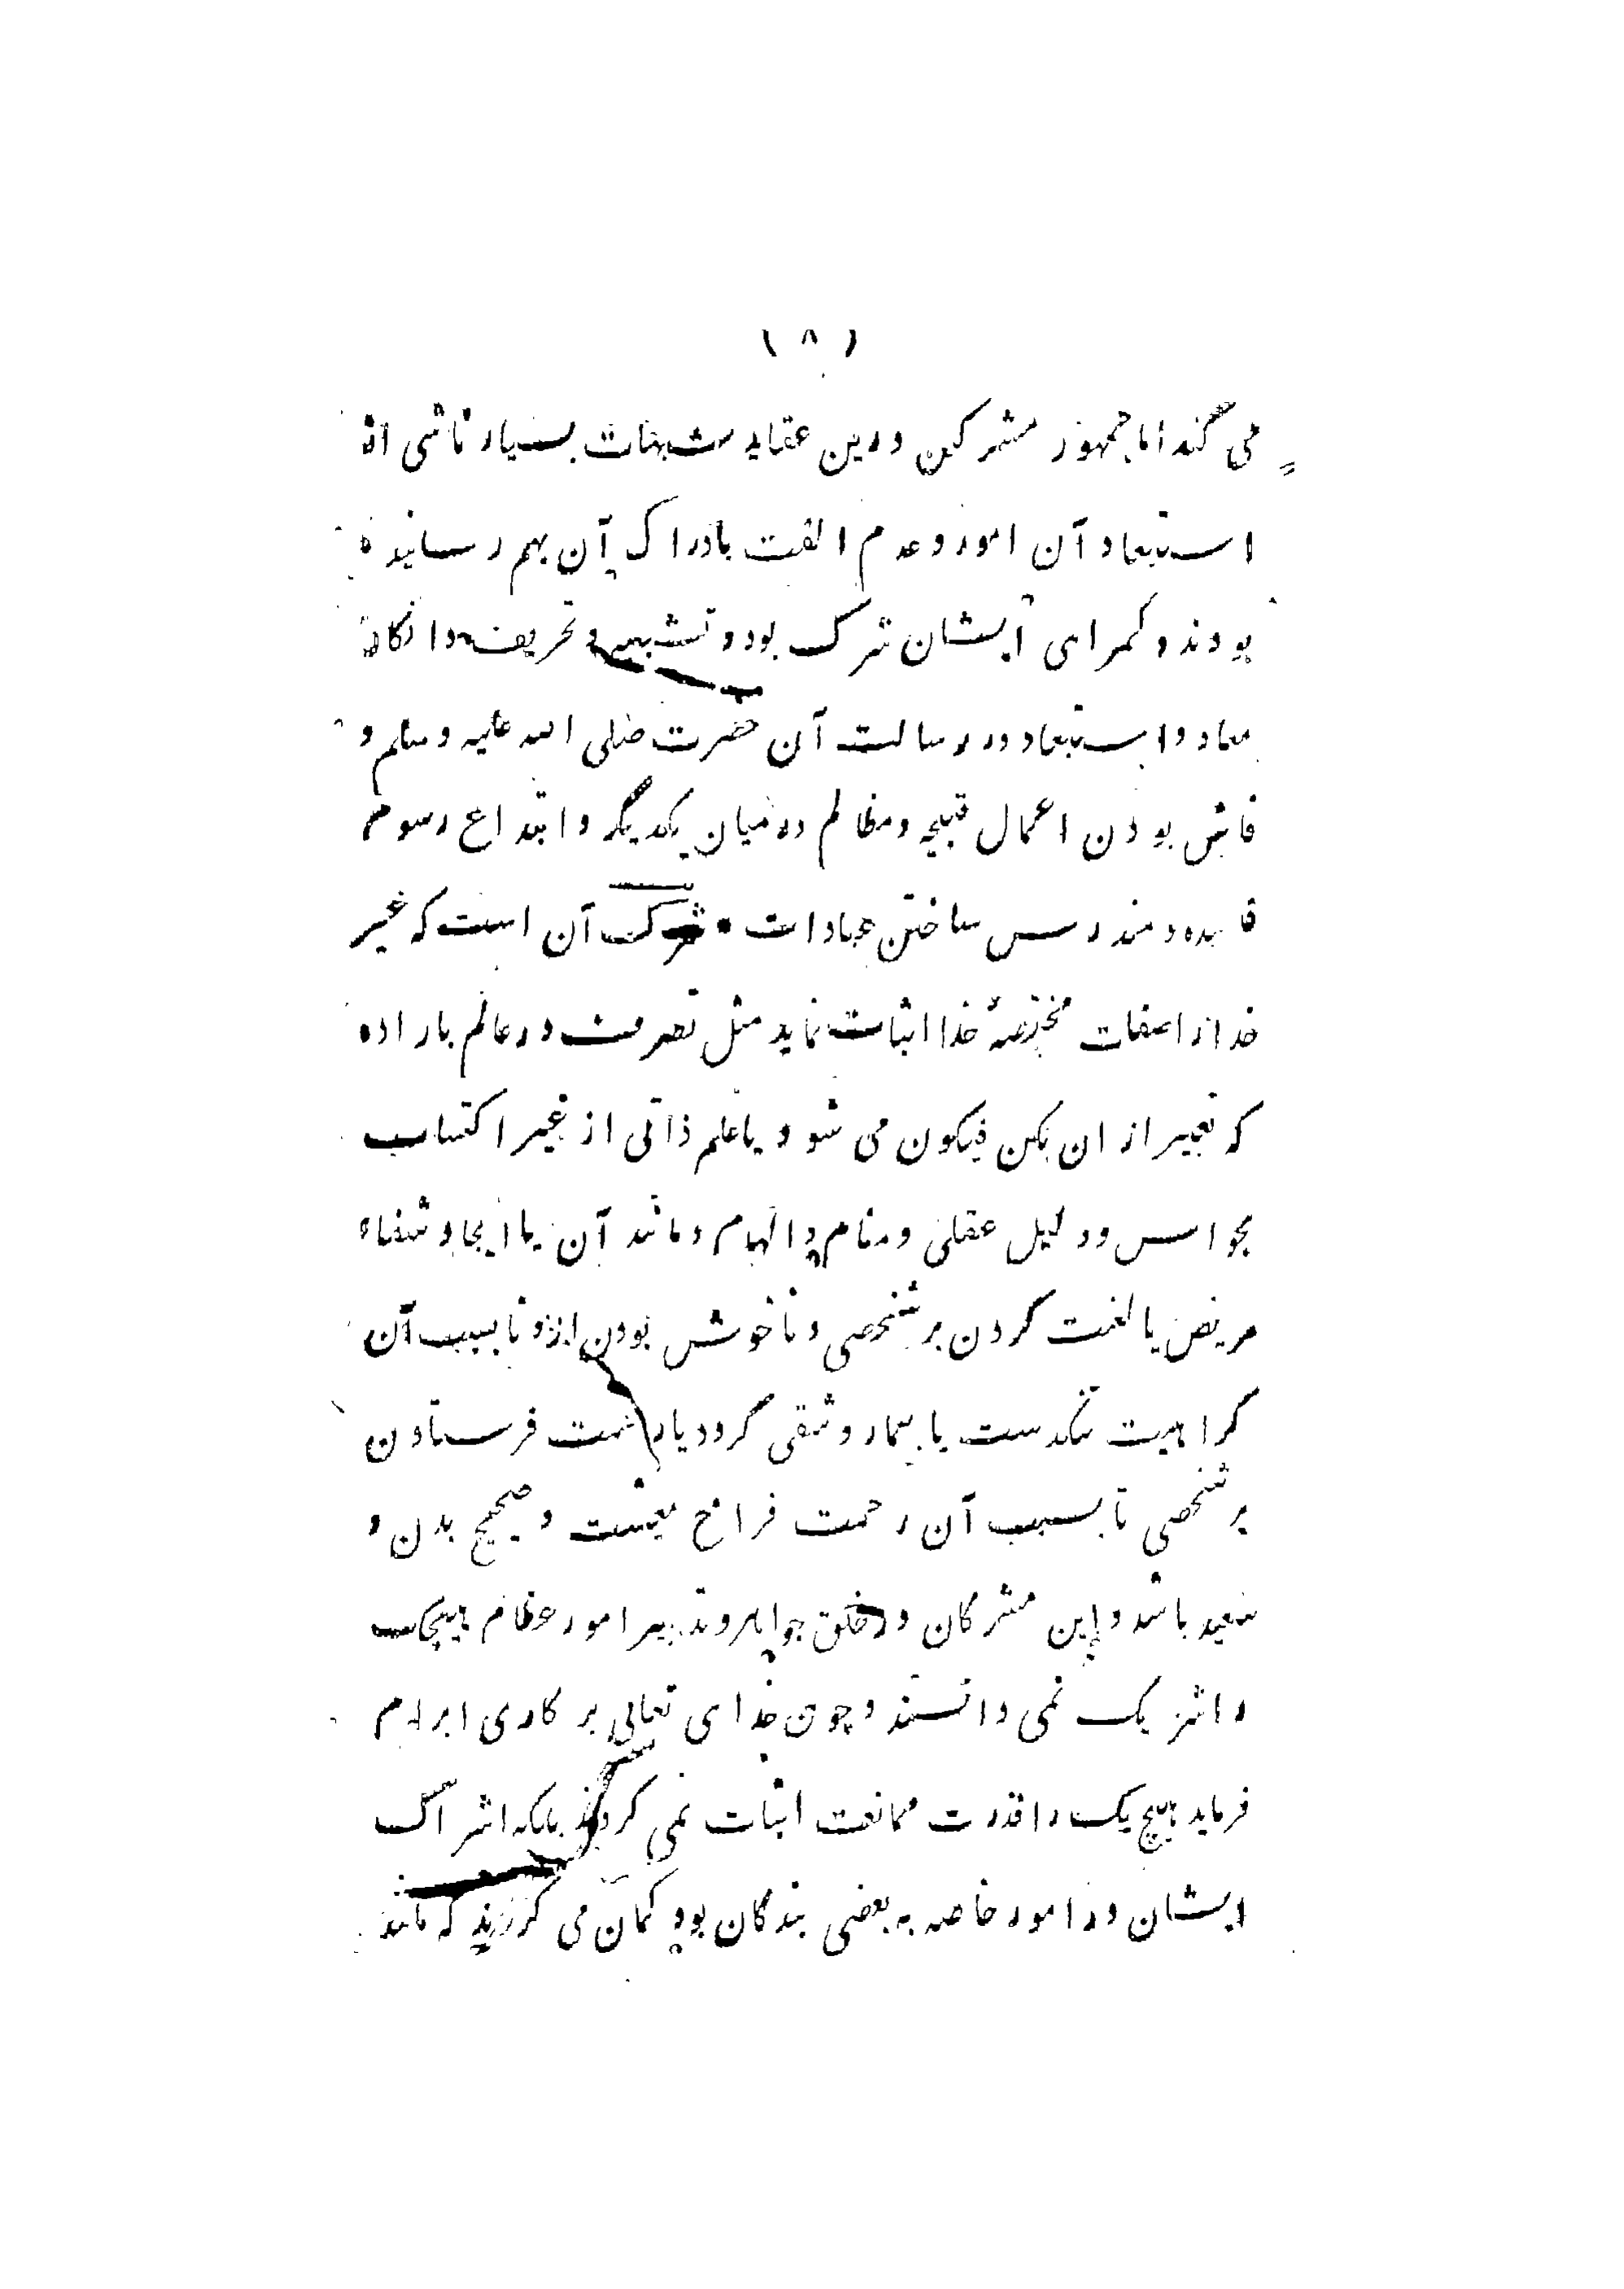 ( ۸ )
می کند اما جمهور مشرکین درین عقاید شبهات بسیار ناشی از
استبعاد آن امور و عدم الفت بادراک آن بهم رسانیده
بودند و گمراهی ایشان شرک بود و تشبیه و تحریف و انکار
معاد و استبعاد در رسالت آن حضرت صلی الله علیه وسلم و
فاش بودن اعمال قبیحه و مظالم در میان یکدیگر و ابتداع رسوم
فاسده و مندرس ساختن عبادات • شرک آن است که غیر
خدا را صفات مختصهٔ خدا اثبات نماید مثل تصرف در عالم باراده
که تعبیر از ان بکن فیکون می شود یا علم ذاتی از غیر اکتساب
بحواس و دلیل عقلی و منام و الهام و مانند آن یا ایجاد شفاء
مریض یا لعنت کردن بر شخصی و ناخوش بودن ازو تا بسبب آن
کراهیت تنگدست یا بیمار و شقی گردد یا رحمت فرستادن
بر شخصی تا بسبب آن رحمت فراخ معیشت و صحیح بدن و
سعید باشد و این مشرکان در خلق جواهر و تدبیر امور عظام هیچکس
را شریک نمی دانستند و چون خدای تعالی بر کاری ابرام
فرماید هیچ یک را قدرت ممانعت اثبات نمی کردند بلکه اشراک
ایشان در امور خاصه به بعضی بندگان بود گمان می کردند که مانند